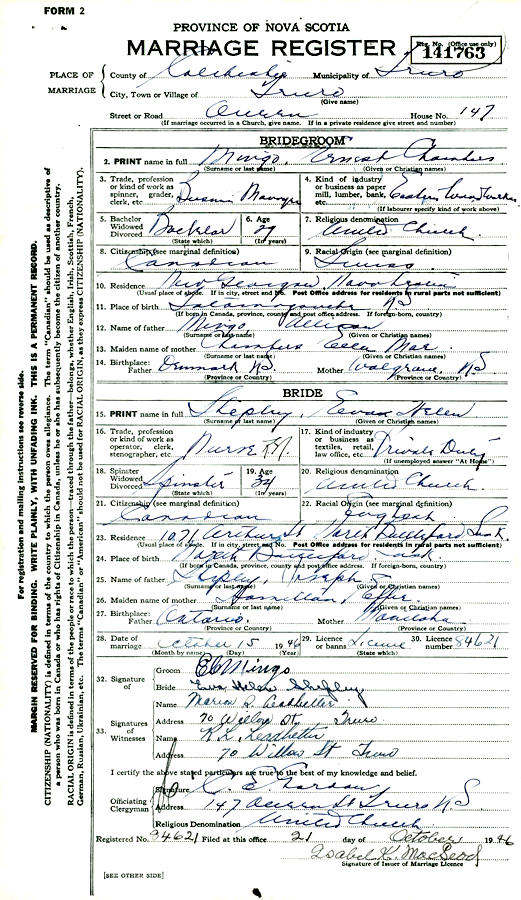 FORM 2
PROVINCE OF NOVA SCOTIA
MARRIAGE REGISTER
Reg. No. (Office use only)
141763
PLACE OF MARRIAGE
County of Colchester Municipality of Truro
City, Town or Village of Truro
(Give name)
Street or Road Queen House No. 147
(If marriage occurred in a Church, give name. If in a private residence give street and number)
BRIDEGROOM
2. PRINT name in full Mingo, Ernest Chambers
(Surname or last name) (Given or Christian names)
3. Trade, profession or kind of work as spinner, grader, clerk, etc.
4. Kind of industry or business as paper mill, lumber, bank, etc. Eastern
(If labourer specify kind of work above)
5. Bachelor Widowed Divorced Bachelor
(State which)
6. Age 29
(In years)
7. Religious denomination United Church
8. Citizenship (see marginal definition) Canadian
9. Racial Origin (see marginal definition)
10. Residence New Glasgow Nova Scotia
(Usual place of abode. If in city, street and No. Post Office address for residents in rural parts not sufficient)
11. Place of birth Tatamagouche NS
(If born in Canada, province, county and post office address. If foreign-born, country)
12. Name of father Mingo,
(Surname or last name) (Given or Christian names)
13. Maiden name of mother Chambers Ella Mae
(Surname or last name) (Given or Christian names)
14. Birthplace: Father Denmark NS Mother Walgrave NS
(Province or Country) (Province or Country)
BRIDE
15. PRINT name in full Shepley, Helen
(Surname or last name) (Given or Christian names)
16. Trade, profession or kind of work as operator, cleaner, stenographer, etc. Nurse R.N.
17. Kind of industry or business as textiles, retail, law office, etc. Private Duty
(If unemployed answer "At Home")
18. Spinster Widowed Divorced Spinster
(State which)
19. Age 34
(In years)
20. Religious denomination United Church
21. Citizenship (see marginal definition) Canadian
22. Racial Origin (see marginal definition) English
23. Residence St North Battleford Sask
(Usual place of abode. If in city, street and No. Post Office address for residents in rural parts not sufficient)
24. Place of birth North Battleford Sask.
(If born in Canada, province, county and post office address. If foreign-born, country)
25. Name of father Shepley, Joseph
(Surname or last name) (Given or Christian names)
26. Maiden name of mother Hamilton, Effie
(Surname or last name) (Given or Christian names)
27. Birthplace: Father Ontario Mother Manitoba
(Province or Country) (Province or Country)
28. Date of marriage October 15 1946
(Month by name) (Day) (Year)
29. Licence or banns Licence
(State which)
30. Licence number 84621
32. Signature of
Groom E C Mingo
Bride Eva Helen Shepley
33. Signatures of Witnesses
Name Maria L Leadbetter
Address 70 Willow St. Truro
Name R L Leadbetter
Address 70 Willow St Truro
I certify the above stated particulars are true to the best of my knowledge and belief.
Officiating Clergyman
Signature C. E. Gordon
Address 147 Queen St Truro N S
Religious Denomination United Church
Registered No. 94621 Filed at this office 21 day of October 1946
Isabel K. MacLeod
Signature of Issuer of Marriage Licence
[SEE OTHER SIDE]
For registration and mailing instructions see reverse side.
MARGIN RESERVED FOR BINDING. WRITE PLAINLY, WITH UNFADING INK. THIS IS A PERMANENT RECORD.
CITIZENSHIP (NATIONALITY) is defined in terms of the country to which the person owes allegiance. The term "Canadian" should be used as descriptive of
a person who was born in Canada or who has rights of Citizenship in Canada, unless he or she has subsequently become the citizen of another country.
RACIAL ORIGIN is defined in terms of the people or race to which this person—traced through the father—belongs, whether English, Irish, Scottish, French,
German, Russian, Ukrainian, etc. The terms "Canadian" or "American" should not be used for RACIAL ORIGIN, as they express CITIZENSHIP (NATIONALITY).